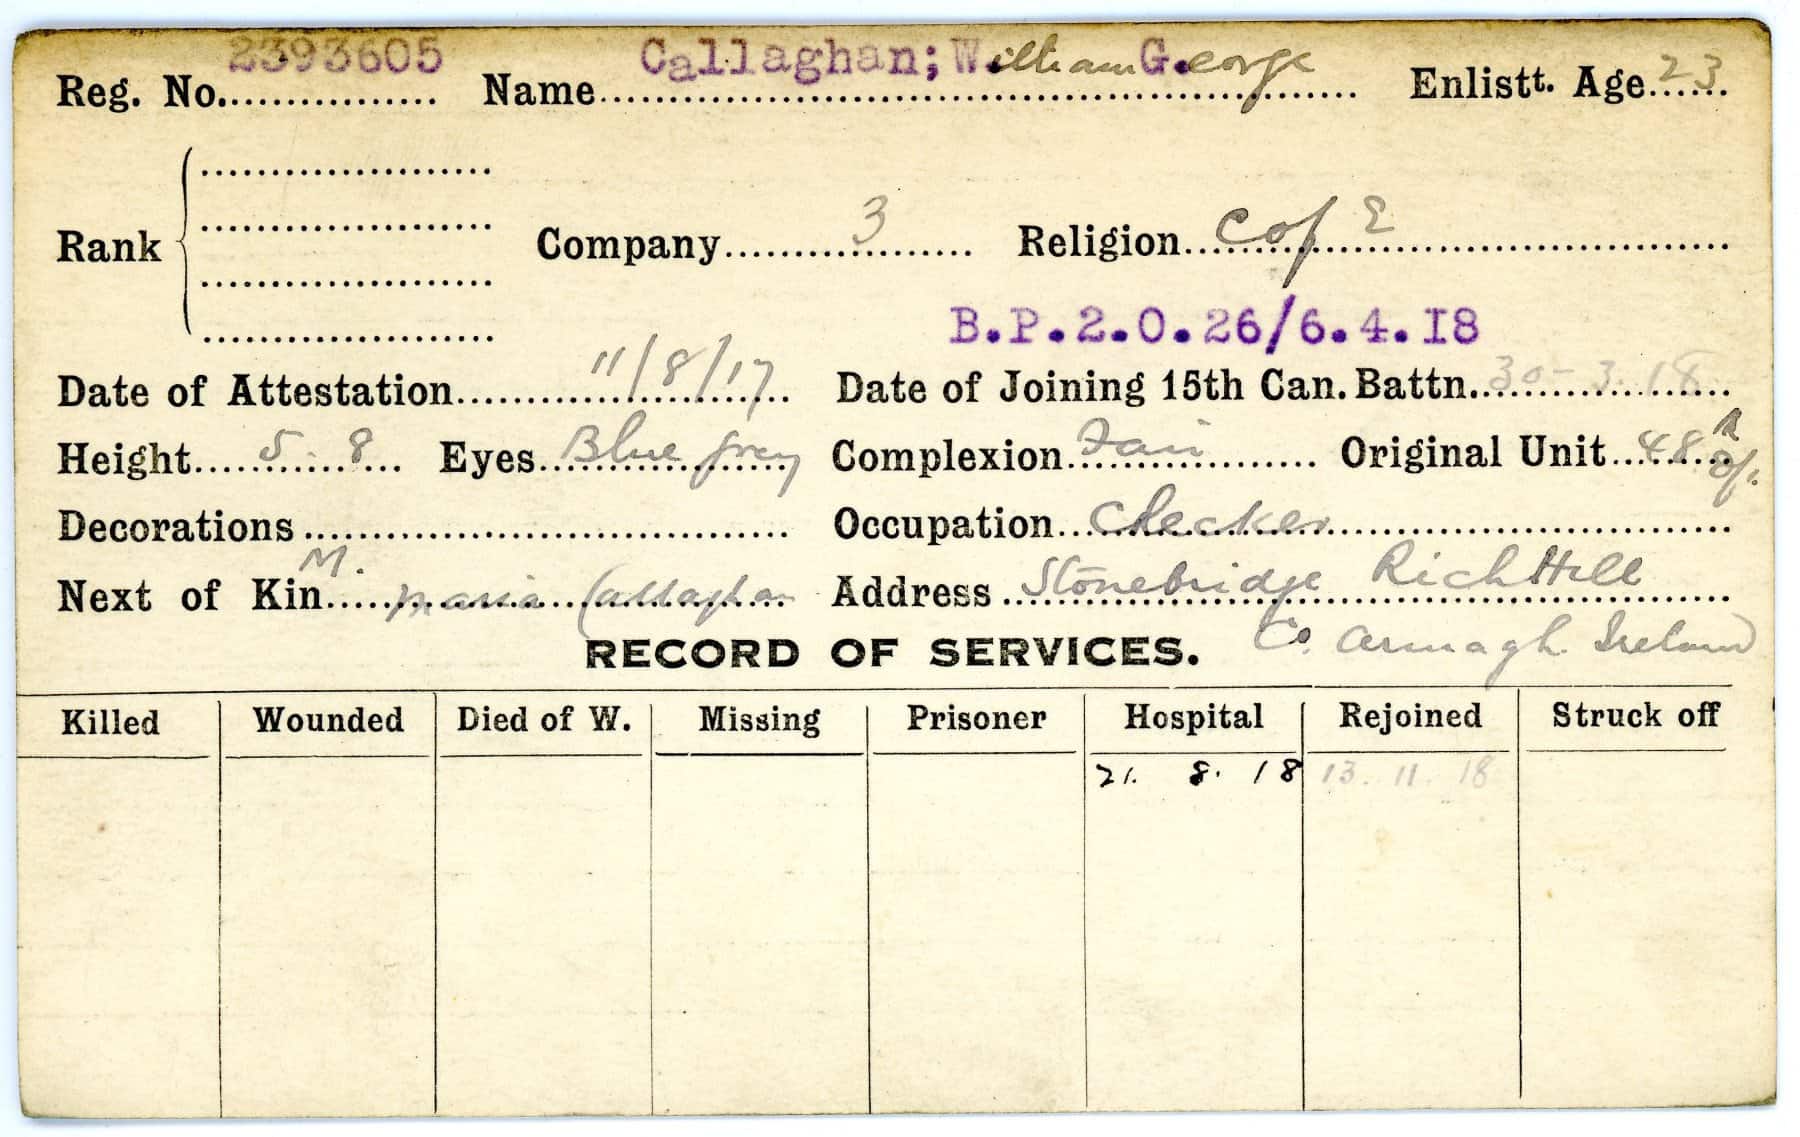 Reg. No. 2393605 Name Callaghan; William George Enlistt. Age 23
Rank Company 3 Religion C of E
B.P.2.O.26/6.4.18
Date of Attestation 11/8/17 Date of Joining 15th Can. Battn. 30-3.18
Height 5. 8 Eyes Blue grey Complexion Fair Original Unit 48
Decorations Occupation Checker
Next of Kin M. Maria Callaghan Address Stonebridge RichHill
RECORD OF SERVICES. Co. Armagh. Ireland
Killed Wounded Died of W. Missing Prisoner Hospital Rejoined Struck off
21. 8. 18 13. 11. 18